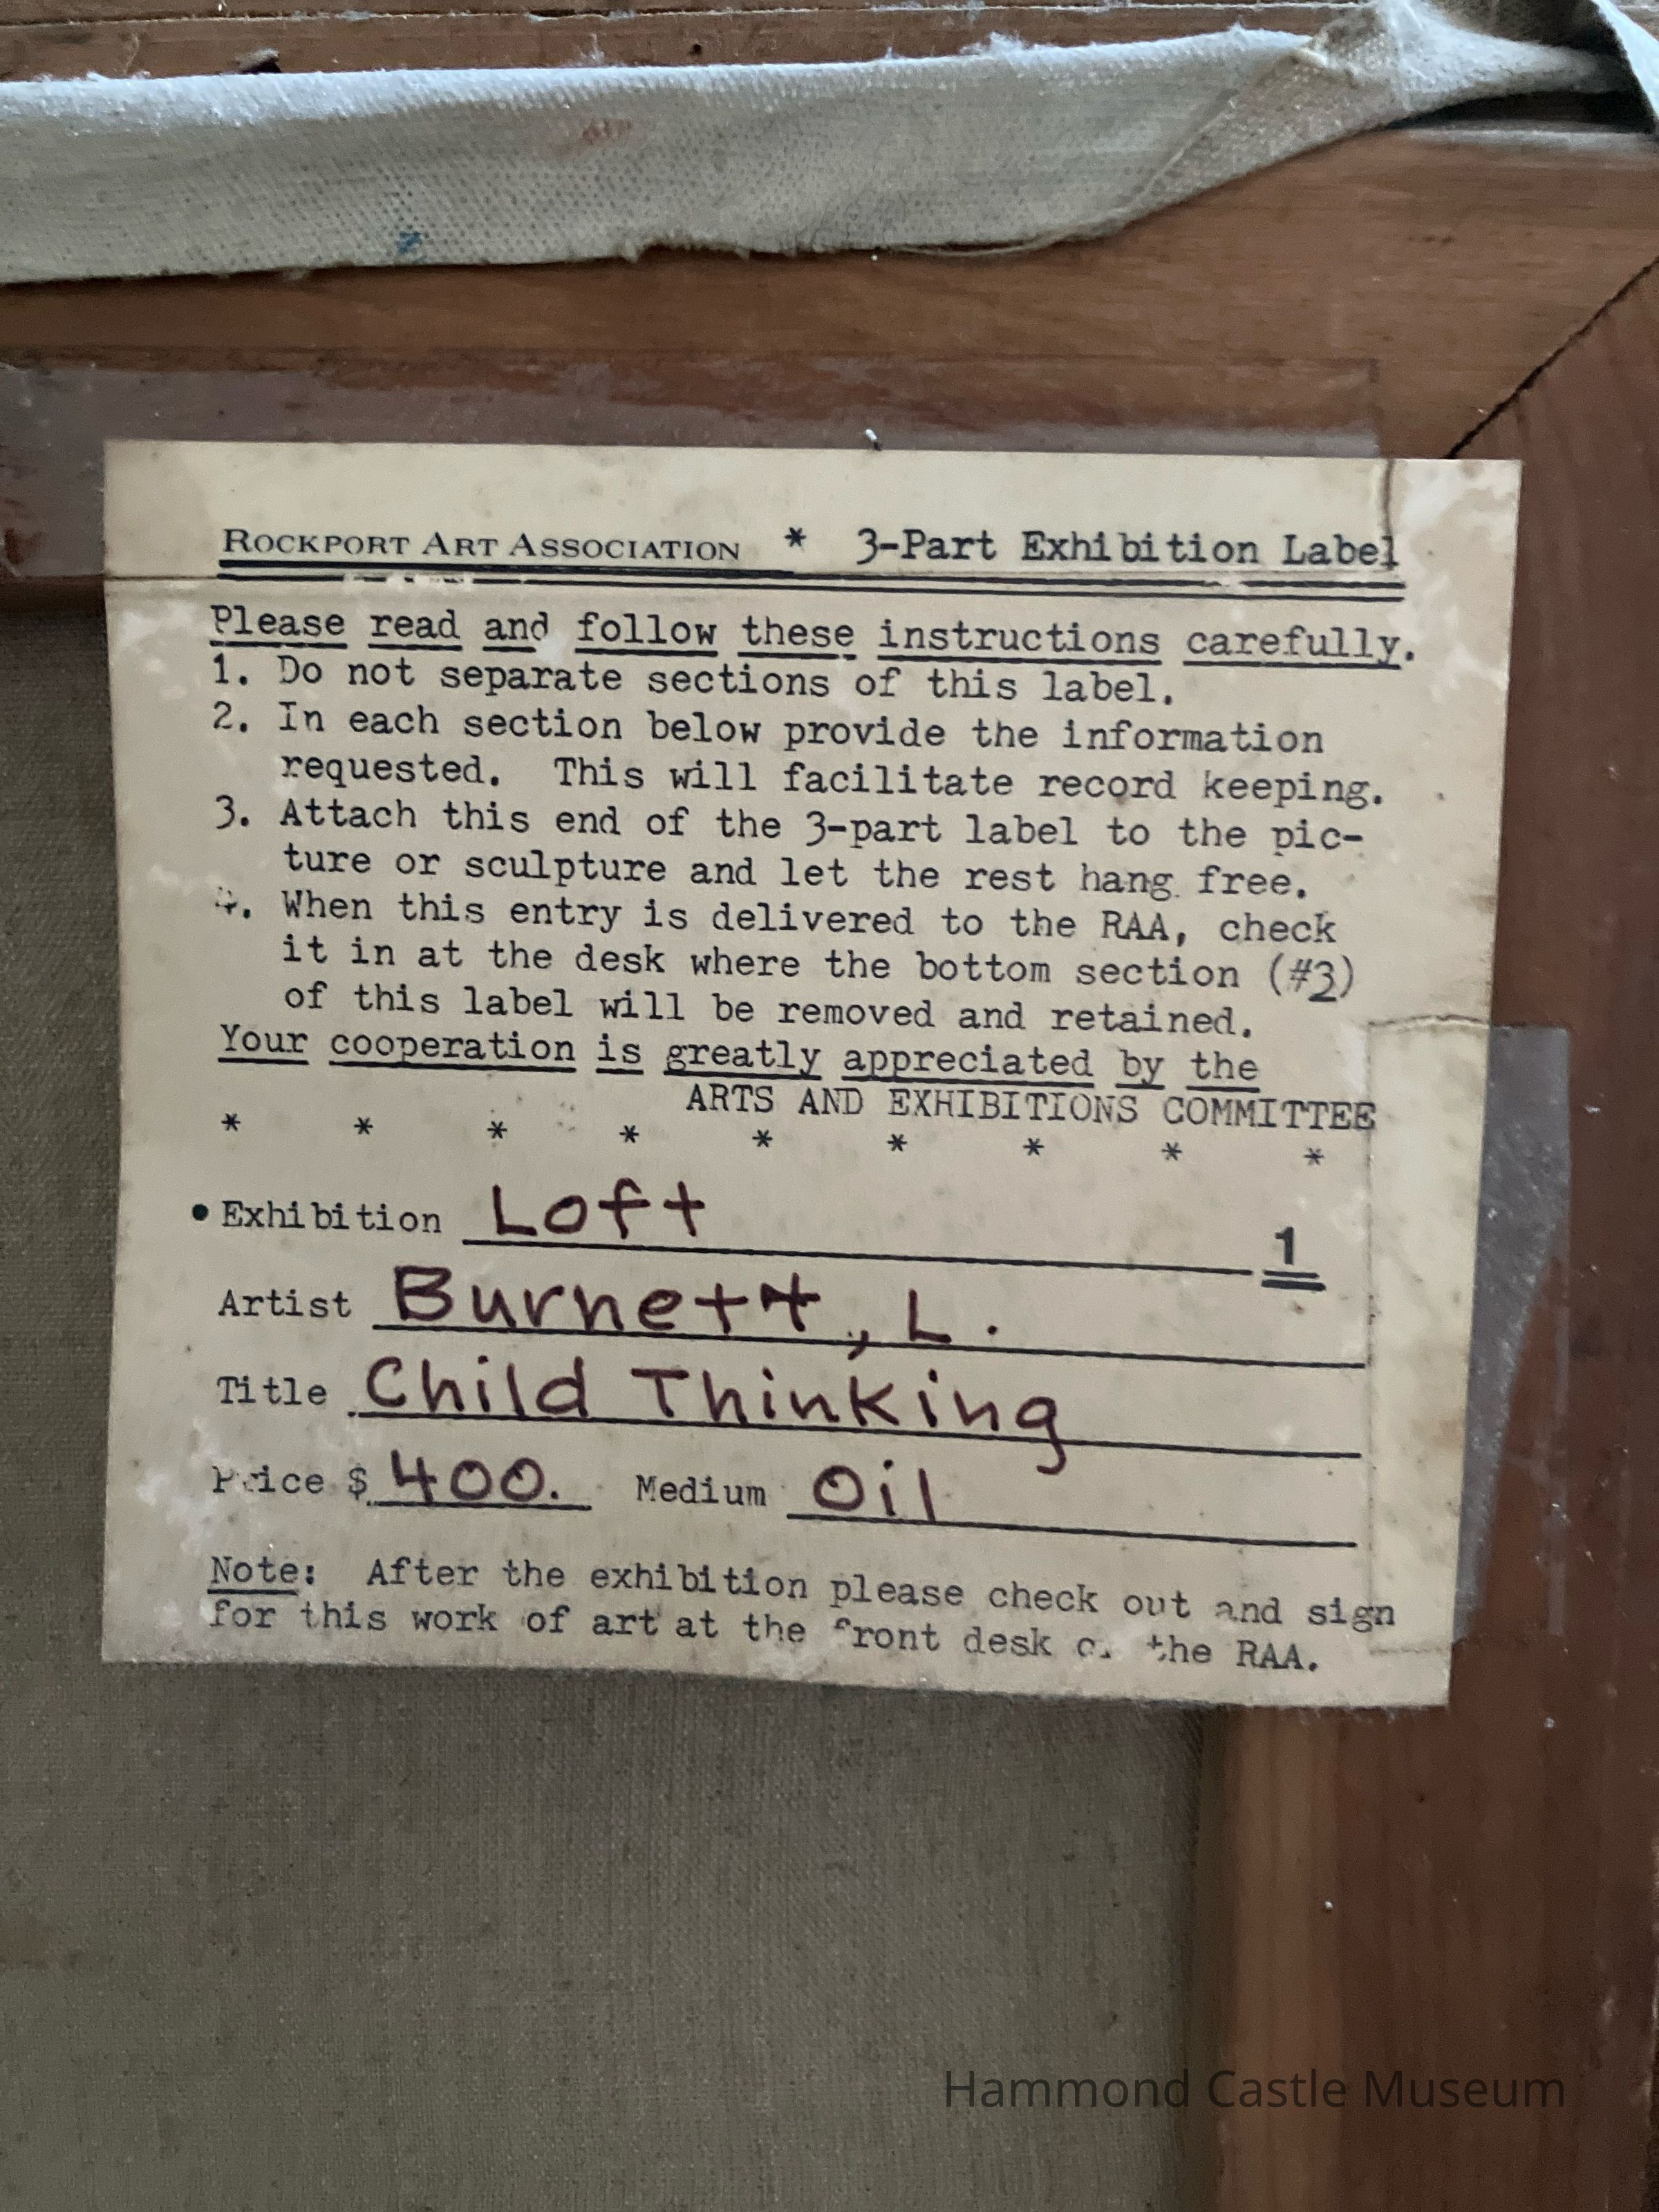 ROCKPORT ART ASSOCIATION * 3-Part Exhibition Label
Please read and follow these instructions carefully.
1. Do not separate sections of this label.
2. In each section below provide the information
requested. This will facilitate record keeping.
3. Attach this end of the 3-part label to the pic-
ture or sculpture and let the rest hang free.
4. When this entry is delivered to the RAA, check
it in at the desk where the bottom section (#3)
of this label will be removed and retained.
Your cooperation is greatly appreciated by the
ARTS AND EXHIBITIONS COMMITTEE
* * * * * * * * *
• Exhibition Loft 1
Artist Burnett, L.
Title Child Thinking
Price $ 400. Medium Oil
Note: After the exhibition please check out and sign
for this work of art at the front desk the RAA.
Hammond Castle Museum